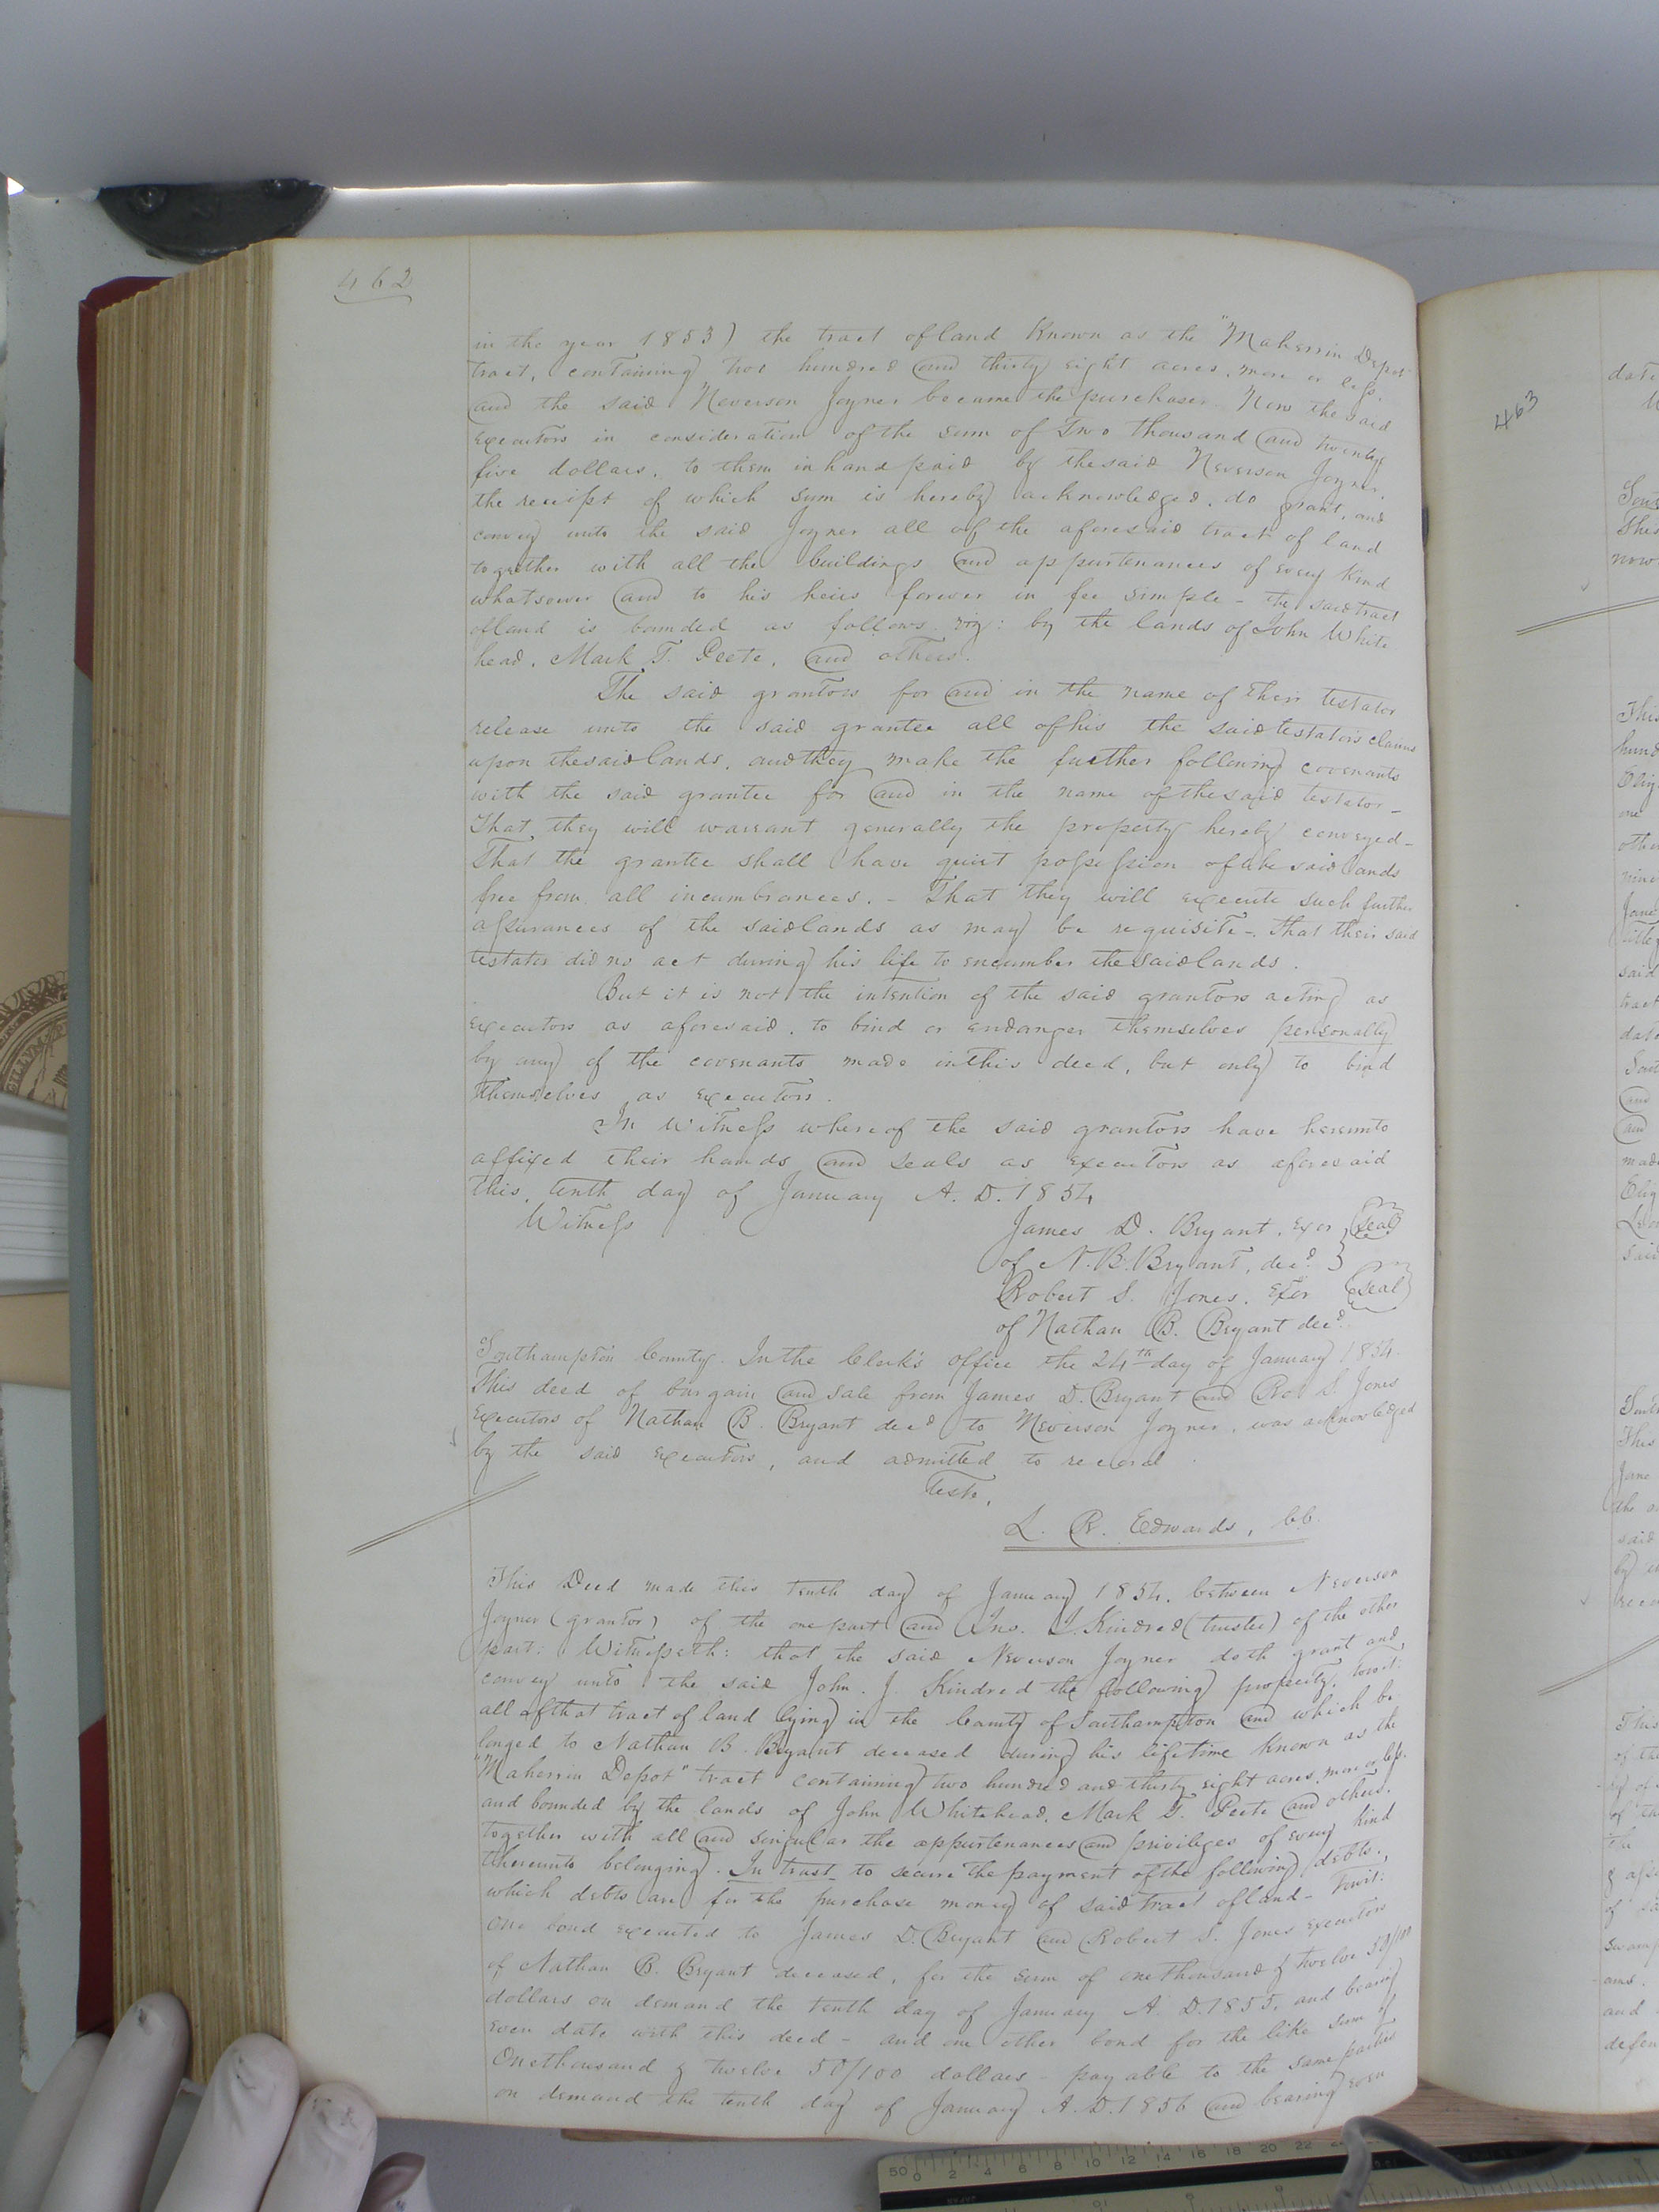 462
in the year 1853) the tract of land Known as the "Maherrin Depot"
tract, containing two hundred and thirty eight acres, more or less,
and the said Neverson Joyner became the purchaser. Now the said
Executors in consideration of the sum of Two thousand and twenty
five dollars, to them in hand paid by the said Neverson Joyner,
the receipt of which sum is hereby acknowledged, do grant, and
convey unto the said Joyner all of the aforesaid tract of land
together with all the buildings and appurtenances of every Kind
whatsoever and to his heirs forever in fee simple - the said tract
of land is bounded as follows viz: by the lands of John White
head, Mark T. Peete, and others.
The said grantors for and in the name of their testator
release unto the said grantee all of his the said testator's claims
upon the said lands, and they make the further following covenants
with the said grantee for and in the name of the said testator -
That they will warrant generally the property hereby conveyed -
That the grantee shall have quiet possession of the said lands
free from all incumbrances. - That they will execute such further
assurances of the said lands as may be requisite -. That their said
testator did no act during his life to encumber the said lands.
But it is not the intention of the said grantors acting as
executors as aforesaid, to bind or endanger themselves personally
by any of the covenants made in this deed, but only to bind
themselves as executors.
In Witness whereof the said grantors have hereunto
affixed their hands and seals as Executors as aforesaid
this, tenth day of January A. D. 1854
Witness
James D. Bryant, Exor (Seal)
of N. B. Bryant, decd. }
Robert S. Jones, Exor (Seal)
of Nathan B. Bryant decd.
Southampton County. In the Clerk's office the 24th day of January 1854.
This deed of bargain and sale from James D. Bryant and Ro. S. Jones
Executors of Nathan B. Bryant decd to Neverson Joyner, was acknowledged
by the said Executors, and admitted to record.
Teste,
L. R. Edwards, CC.
This Deed made this tenth day of January 1854. between Neverson
Joyner (grantor) of the one part and Jno. J. Kindred (trustee) of the other
part: Witnesseth: that the said Neverson Joyner doth grant and
convey unto the said John. J. Kindred the following property, towit:
all of that tract of land lying in the County of Southampton and which be
longed to Nathan B. Bryant deceased during his lifetime Known as the
"Maherrin Depot" tract containing two hundred and thirty eight acres, more or less.
and bounded by the lands of John Whitehead, Mark T. Peete and others.
together with all and singular the appurtenances and privileges of every kind
thereunto belonging. In trust to secure the payment of the following debts,
which debts are for the purchase money of said tract of land - Towit:
One bond executed to James D. Bryant and Robert S. Jones Executors
of Nathan B. Bryant deceased, for the sum of one thousand & twelve 50/100
dollars on demand the tenth day of January A. D. 1855. and bearing
even date with this deed - and one other bond for the like sum of
One thousand & twelve 50/100 dollars - payable to the same parties
on demand the tenth day of January A. D. 1856 and bearing even
463